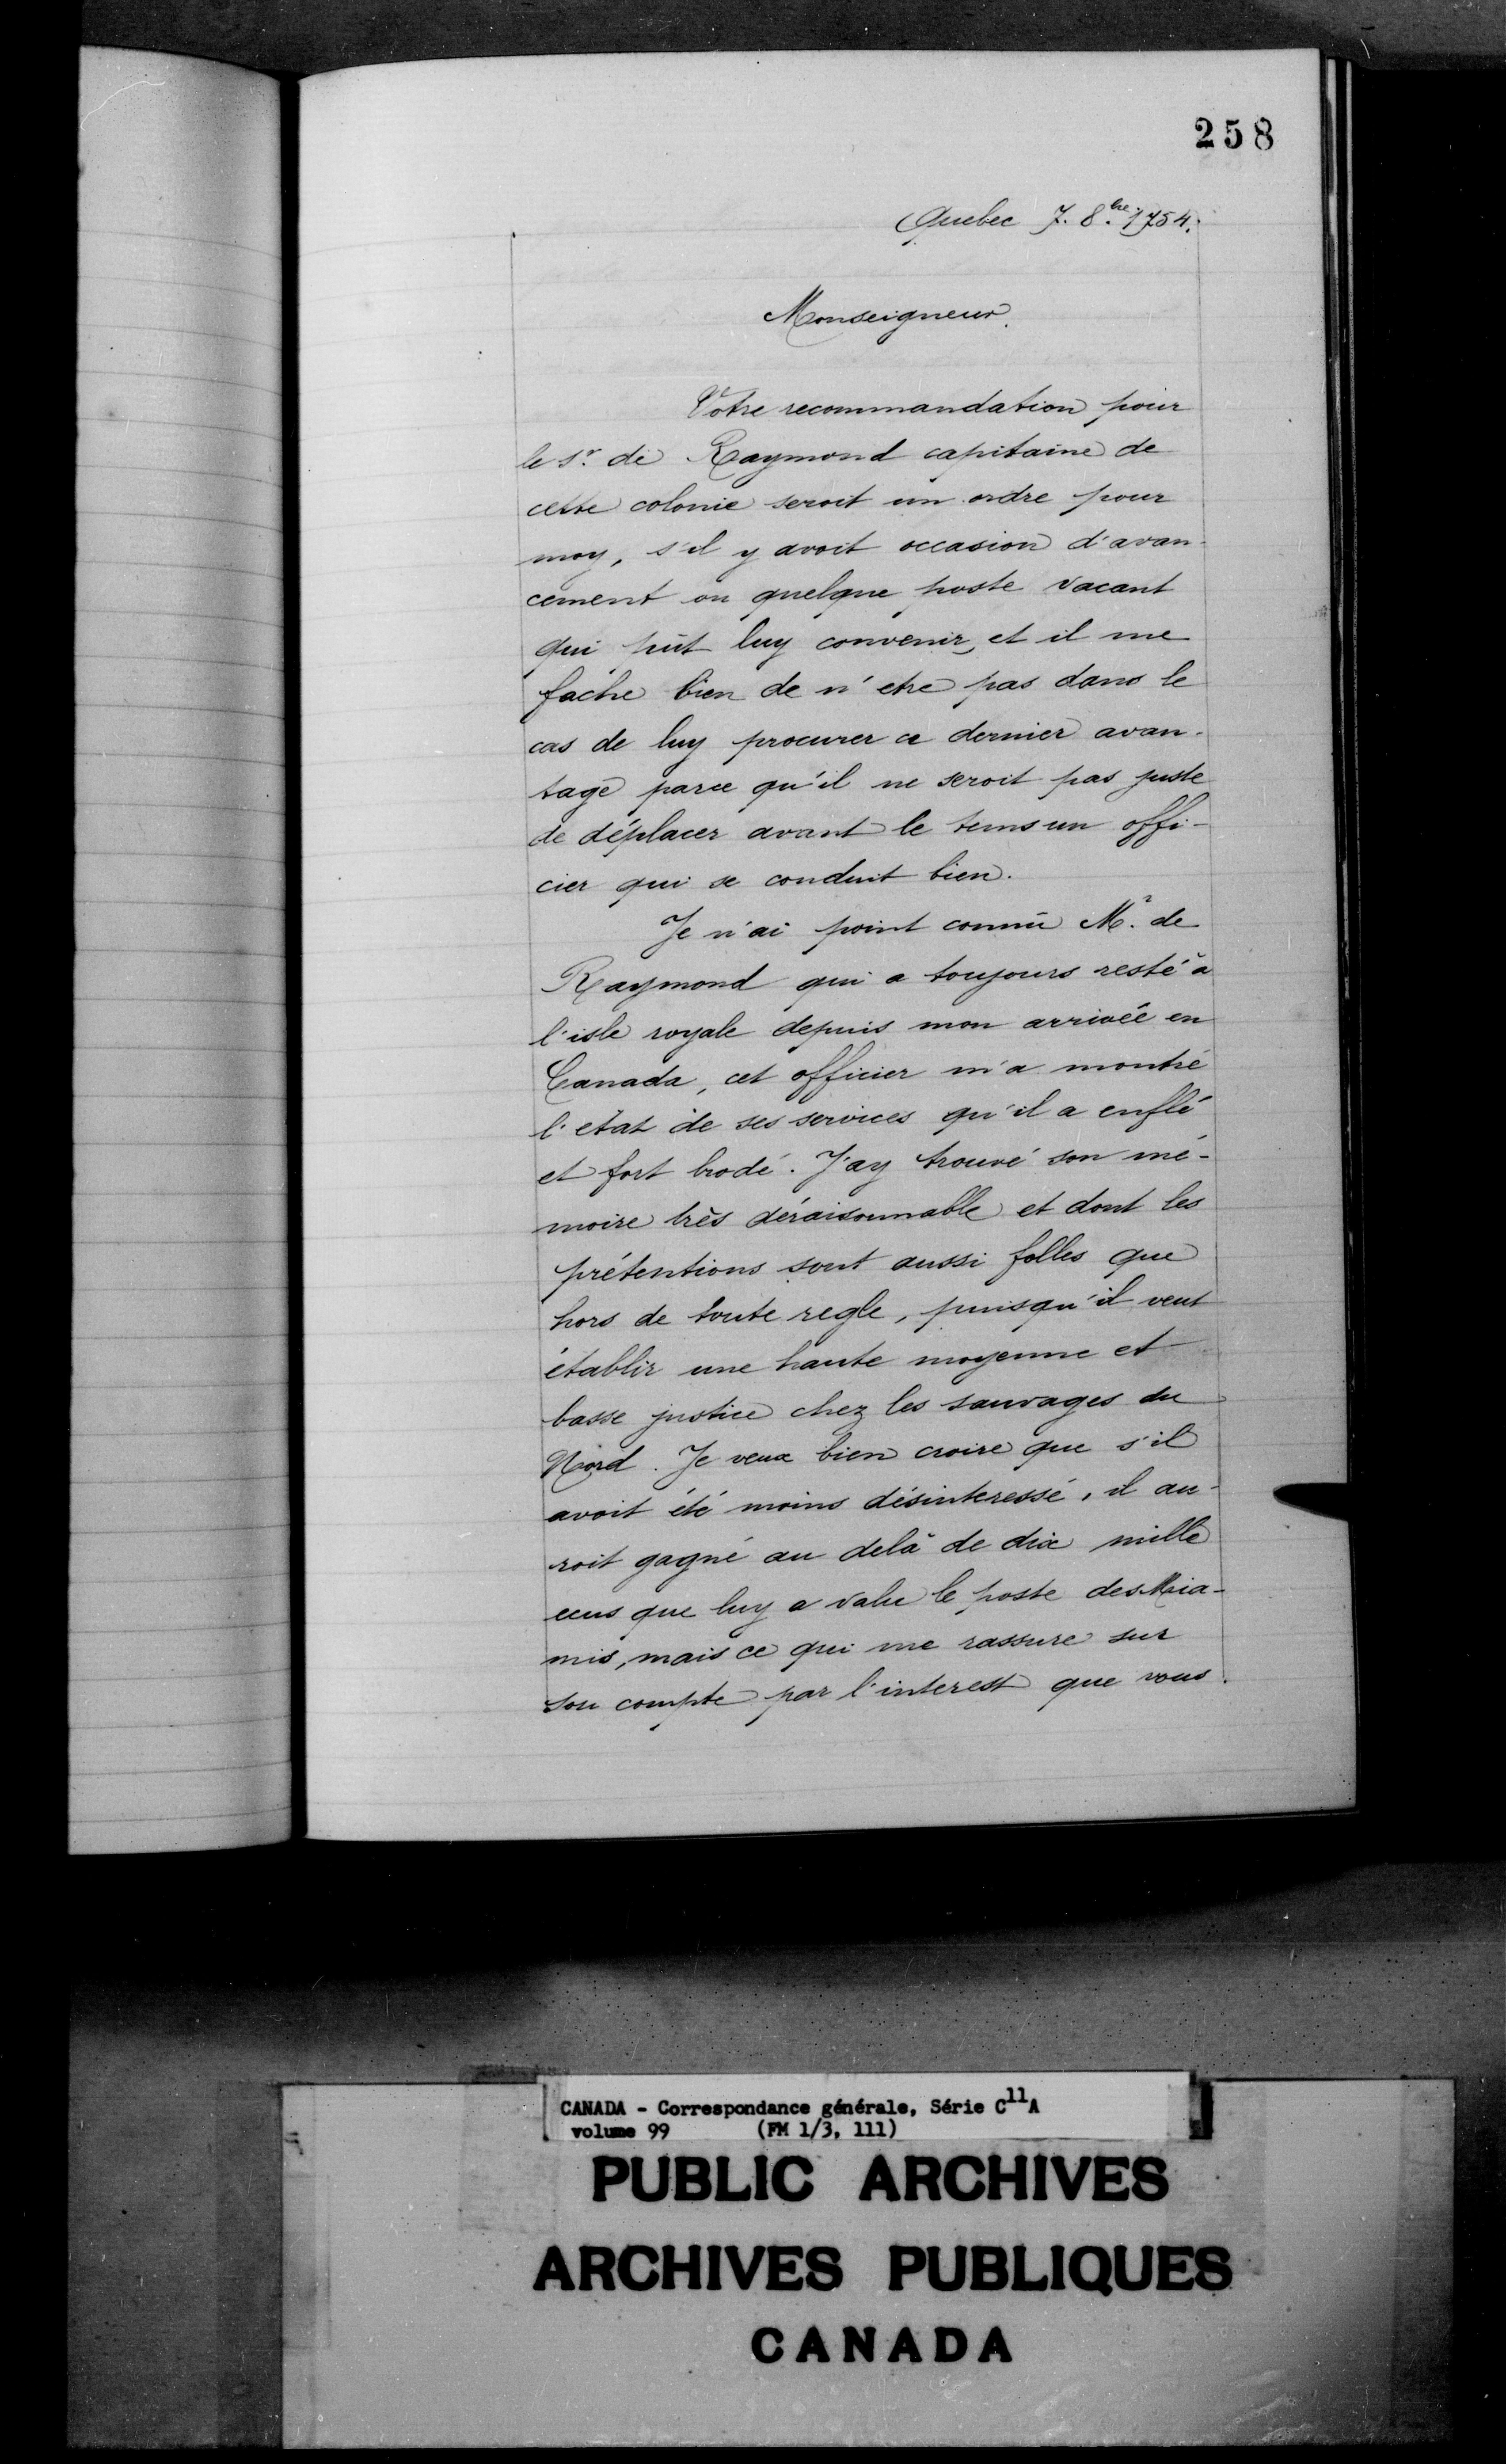 258
Quebec 7. 8.bre 1754.
Monseigneur.
Votre recommandation pour
le Sr. de Raymond capitaine de
cette colonie seroit un ordre pour
moy, s'il y avoit occasion d'avan-
cement ou quelque poste vacant
qui pût luy convenir, et il me
fache bien de n'etre pas dans le
cas de luy procurer ce dernier avan-
tage parce qu'il ne seroit pas juste
de déplacer avant le tems un offi-
cier qui se conduit bien.
Je n'ai point connû Mr. de
Raymond qui a toujours resté à
l'isle royale depuis mon arrivée en
Canada, cet officier m'a montré
l'etat de ses services qu'il a enflé
et fort brodé. J'ay trouvé son mé-
moire très déraisonnable et dont les
prétentions sont aussi folles que
hors de toute regle, puisqu'il veut
établir une haute moyenne et
basse justice chez les sauvages du
Nord. Je veux bien croire que s'il
avoit été moins désinteressé, il au-
roit gagné au delà de dix mille
ecus que luy a valu le poste des Mia-
mis, mais ce qui me rassure sur
son compte par l'interest que vous
CANADA - Correspondance générale, Série C11A
volume 99 (FM 1/3, 111)
PUBLIC ARCHIVES
ARCHIVES PUBLIQUES
CANADA